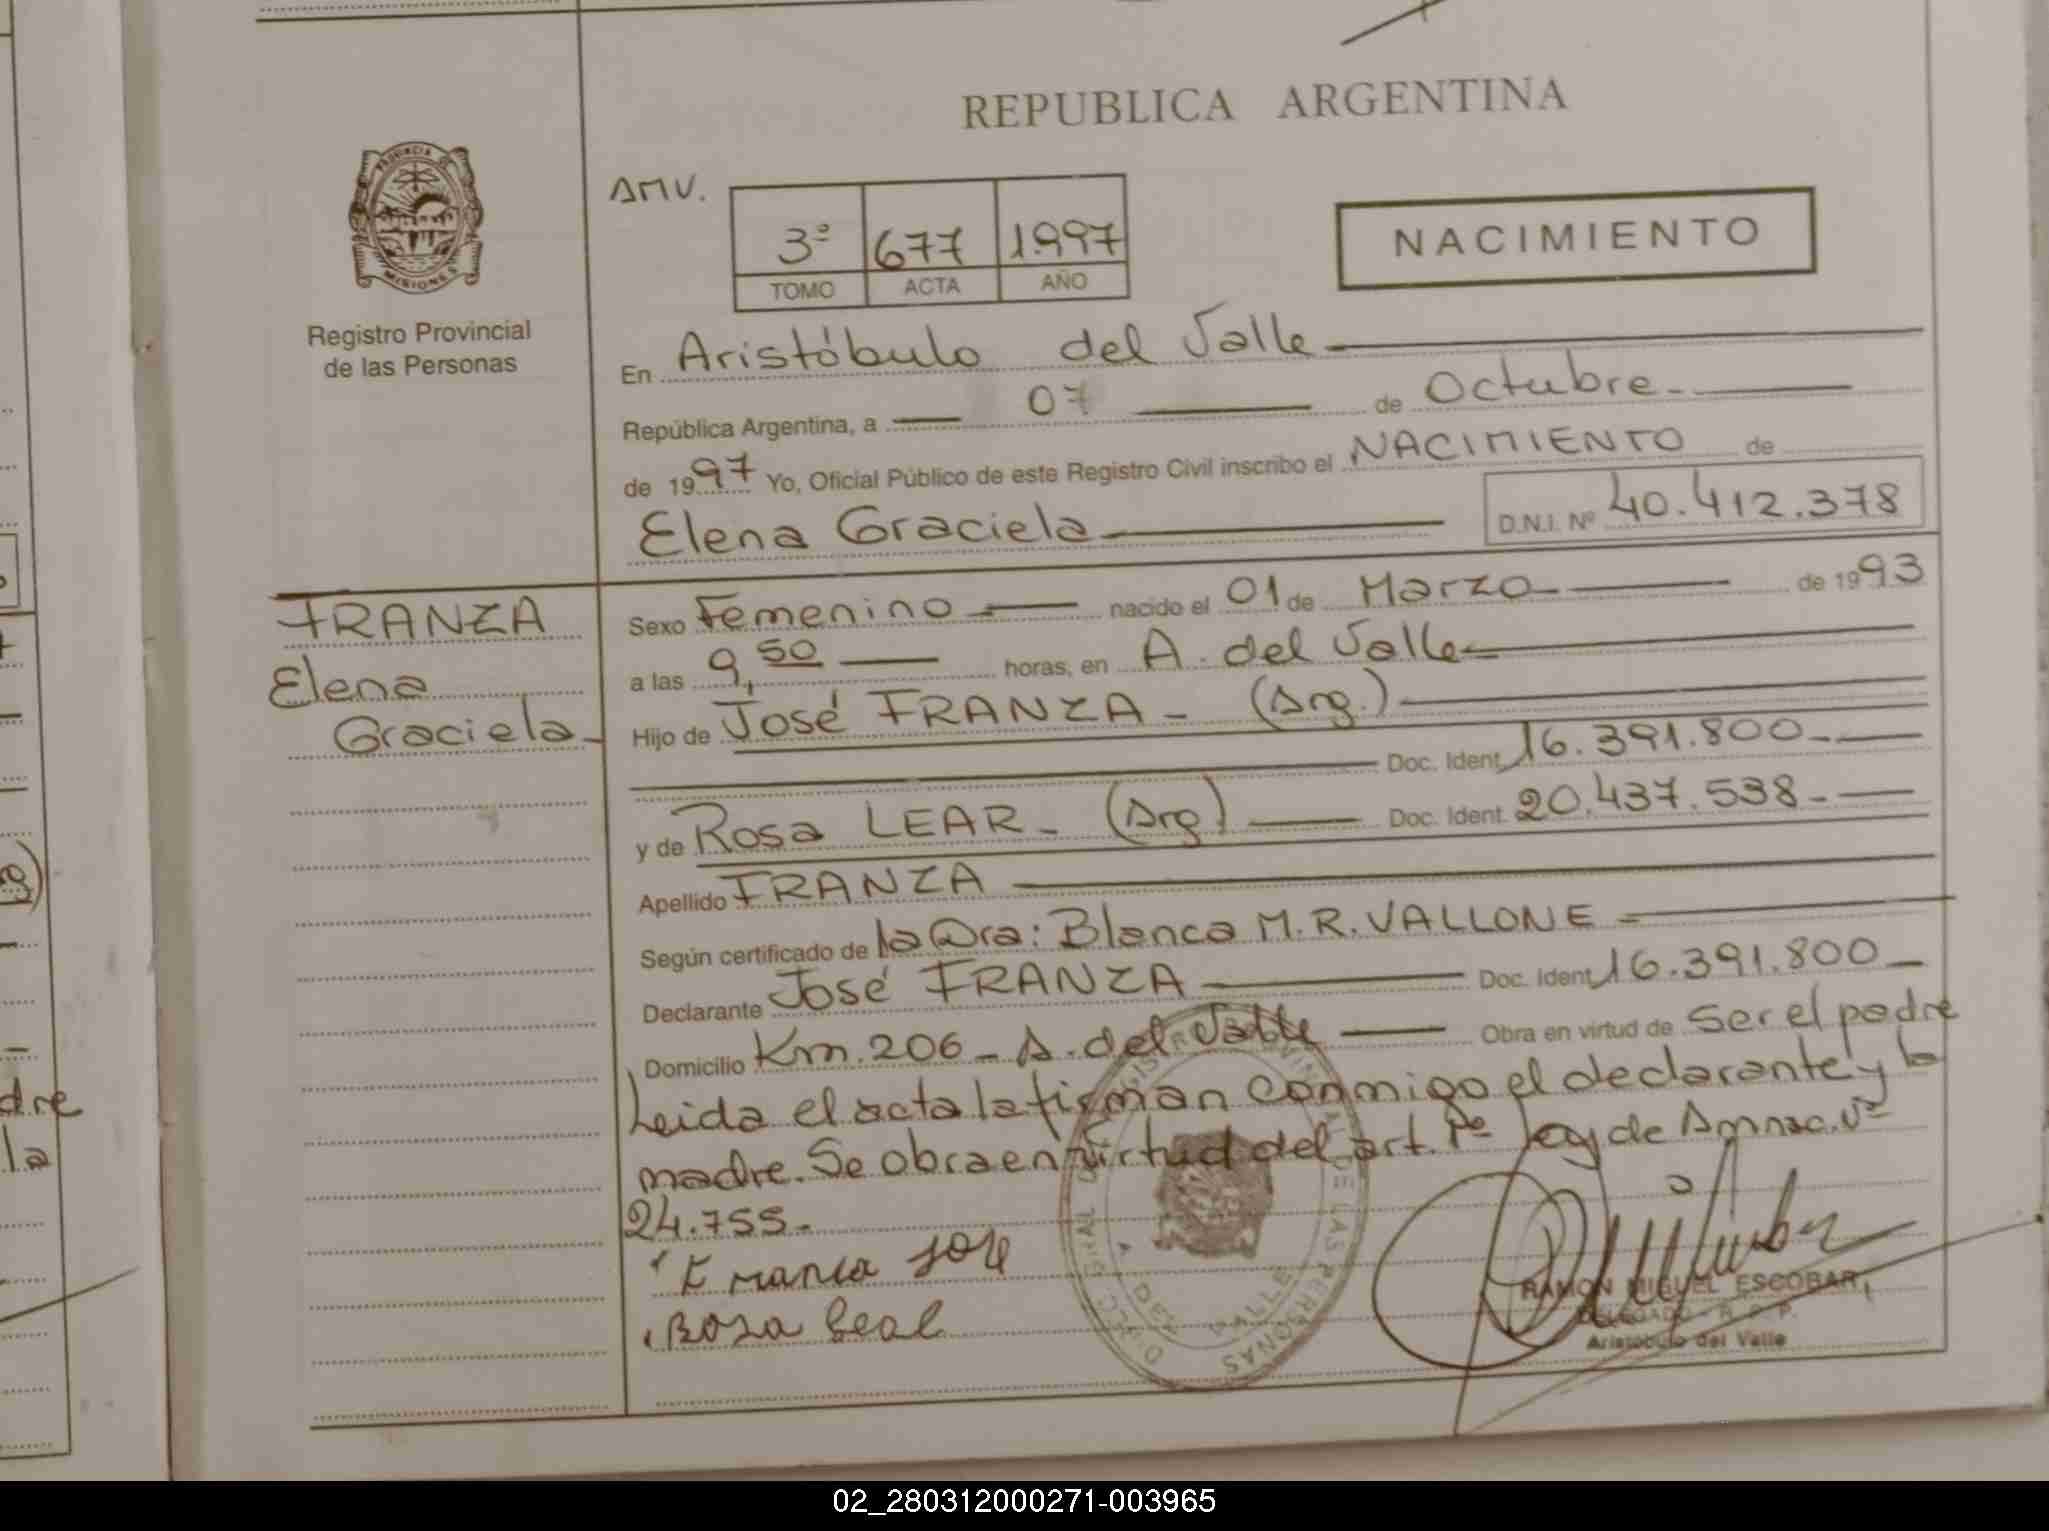 REPUBLICA ARGENTINA
PROVINCIA DE
MISIONES
Registro Provincial
de las Personas
AMV.
3º 677 1.997
TOMO ACTA AÑO
NACIMIENTO
En Aristóbulo del Valle
República Argentina, a 07 de Octubre
de 1997 Yo, Oficial Público de este Registro Civil inscribo el NACIMIENTO de
Elena Graciela D.N.I. Nº 40.412.378
FRANZA
Elena
Graciela
Sexo Femenino nacido el 01 de Marzo de 1993
a las 9,50 horas, en A. del Valle
Hijo de José FRANZA - (Arg.)
Doc. Ident. 16.391.800
y de Rosa LEAR - (Arg) Doc. Ident. 20.437.538
Apellido FRANZA
Según certificado de la Dra: Blanca M.R. VALLONE
Declarante José FRANZA Doc. Ident. 16.391.800
Domicilio Km. 206 - A. del Valle Obra en virtud de Ser el padre
Leida el acta la firman conmigo el declarante y la
madre. Se obra en virtud del art. 1º ley de Amnac. Nº
24.755.
Franza José
Rosa Leal
A DEL VALLE
RAMON MIGUEL ESCOBAR
DELEGADO - R.P.P.
Aristóbulo del Valle
dre
la
02_280312000271-003965